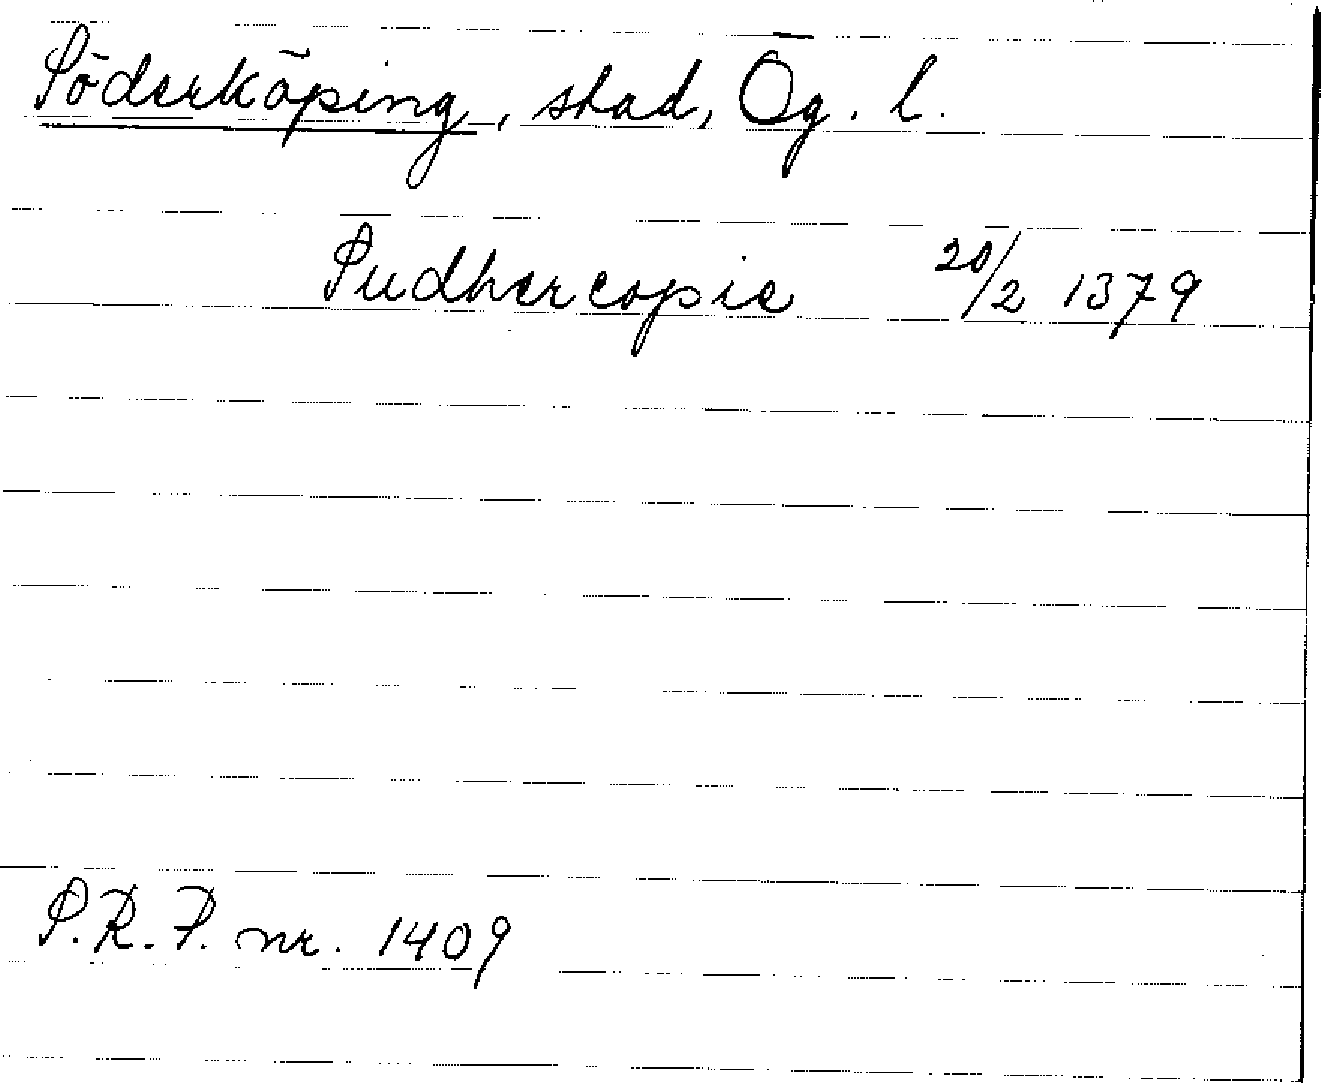 Söderköping, stad, Ög. l.
Sudhercopie 20/2 1379
S.R.P. nr. 1409